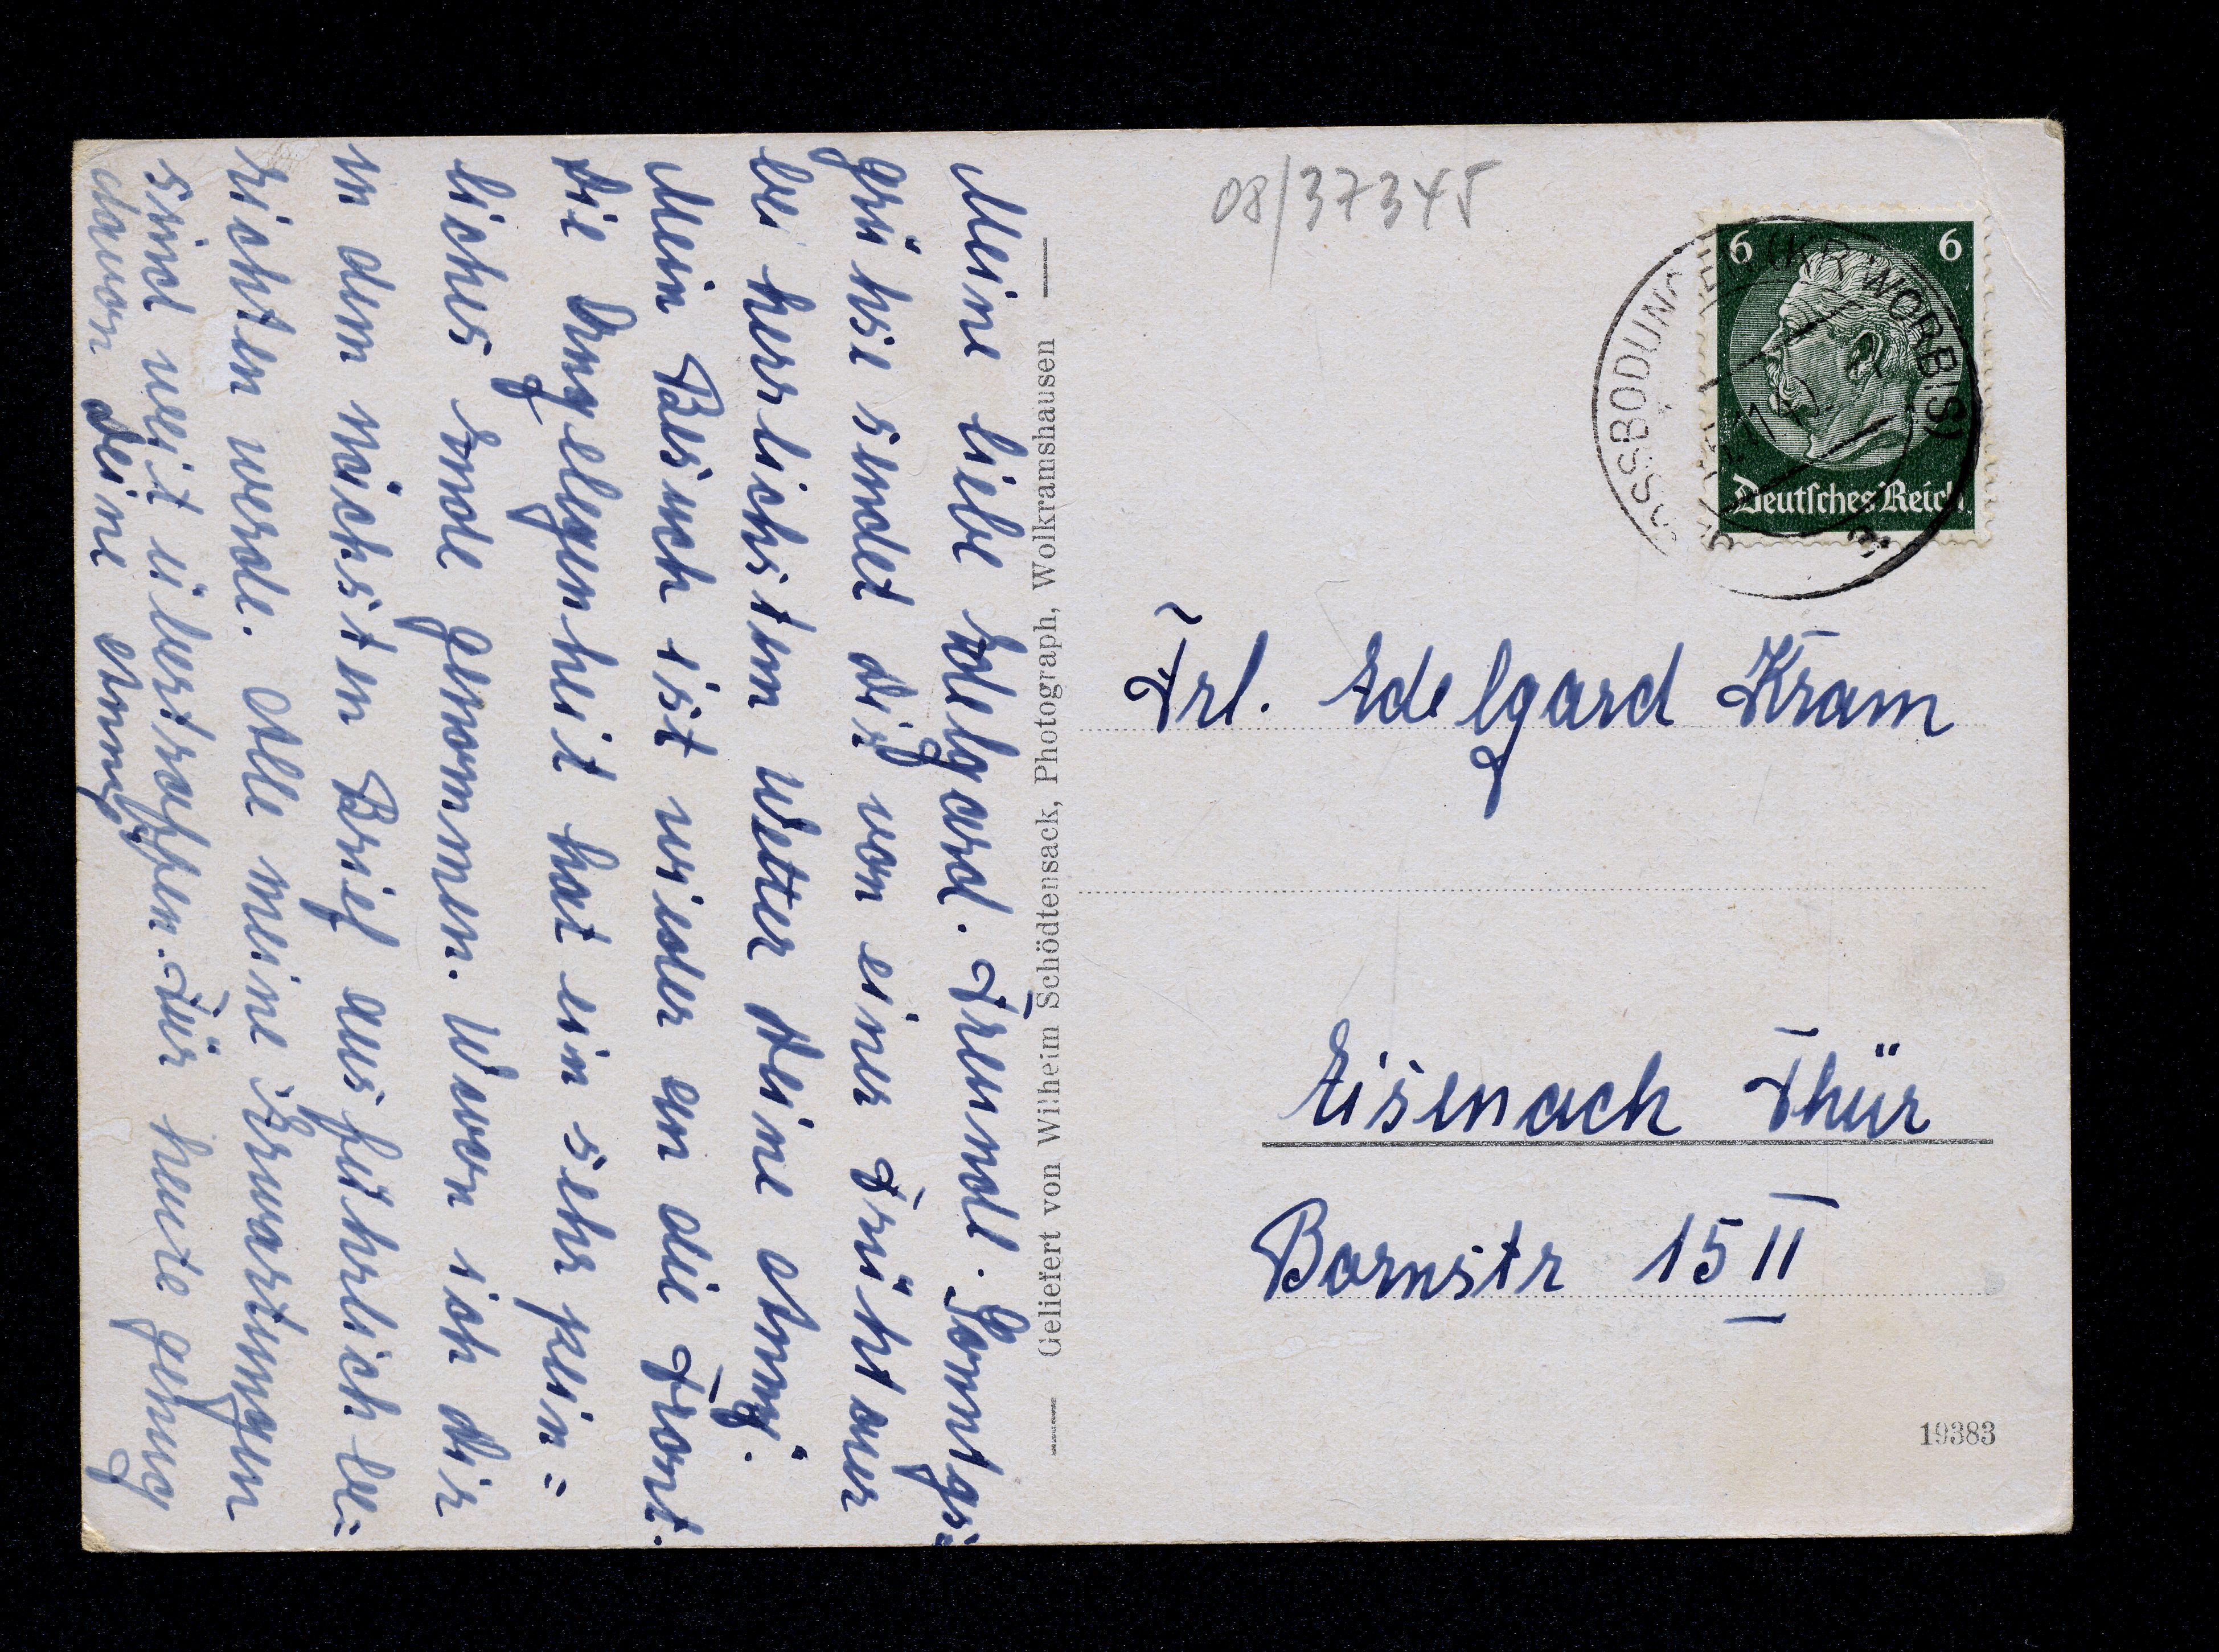 Meine liebe Edelgard. Freundl. Sonntgs=
grühse sendet dir von einer Früht our
bei herrlichsten Wetter Deine Anny.
Mein Besuch ist wieder an die Front.
Die Angelegenheit hat ein sehr pein=
liches Ende genommen. Wovon ich dir
in dem nächsten Brief ausführlich be=
richten werde. Alle meine Erwartungen
sind weit übertroffen. Für heute genug
davon Deine Anny.
Geliefert von Wilhelm Schödtensack, Photograph, Wolkramshausen
08/37345
6 6
Deutsches Reich
SSBODUNG
(KR WORBIS)
Frl. Edelgard Kram
Eisenach Thür
Bornstr 15 II
19383